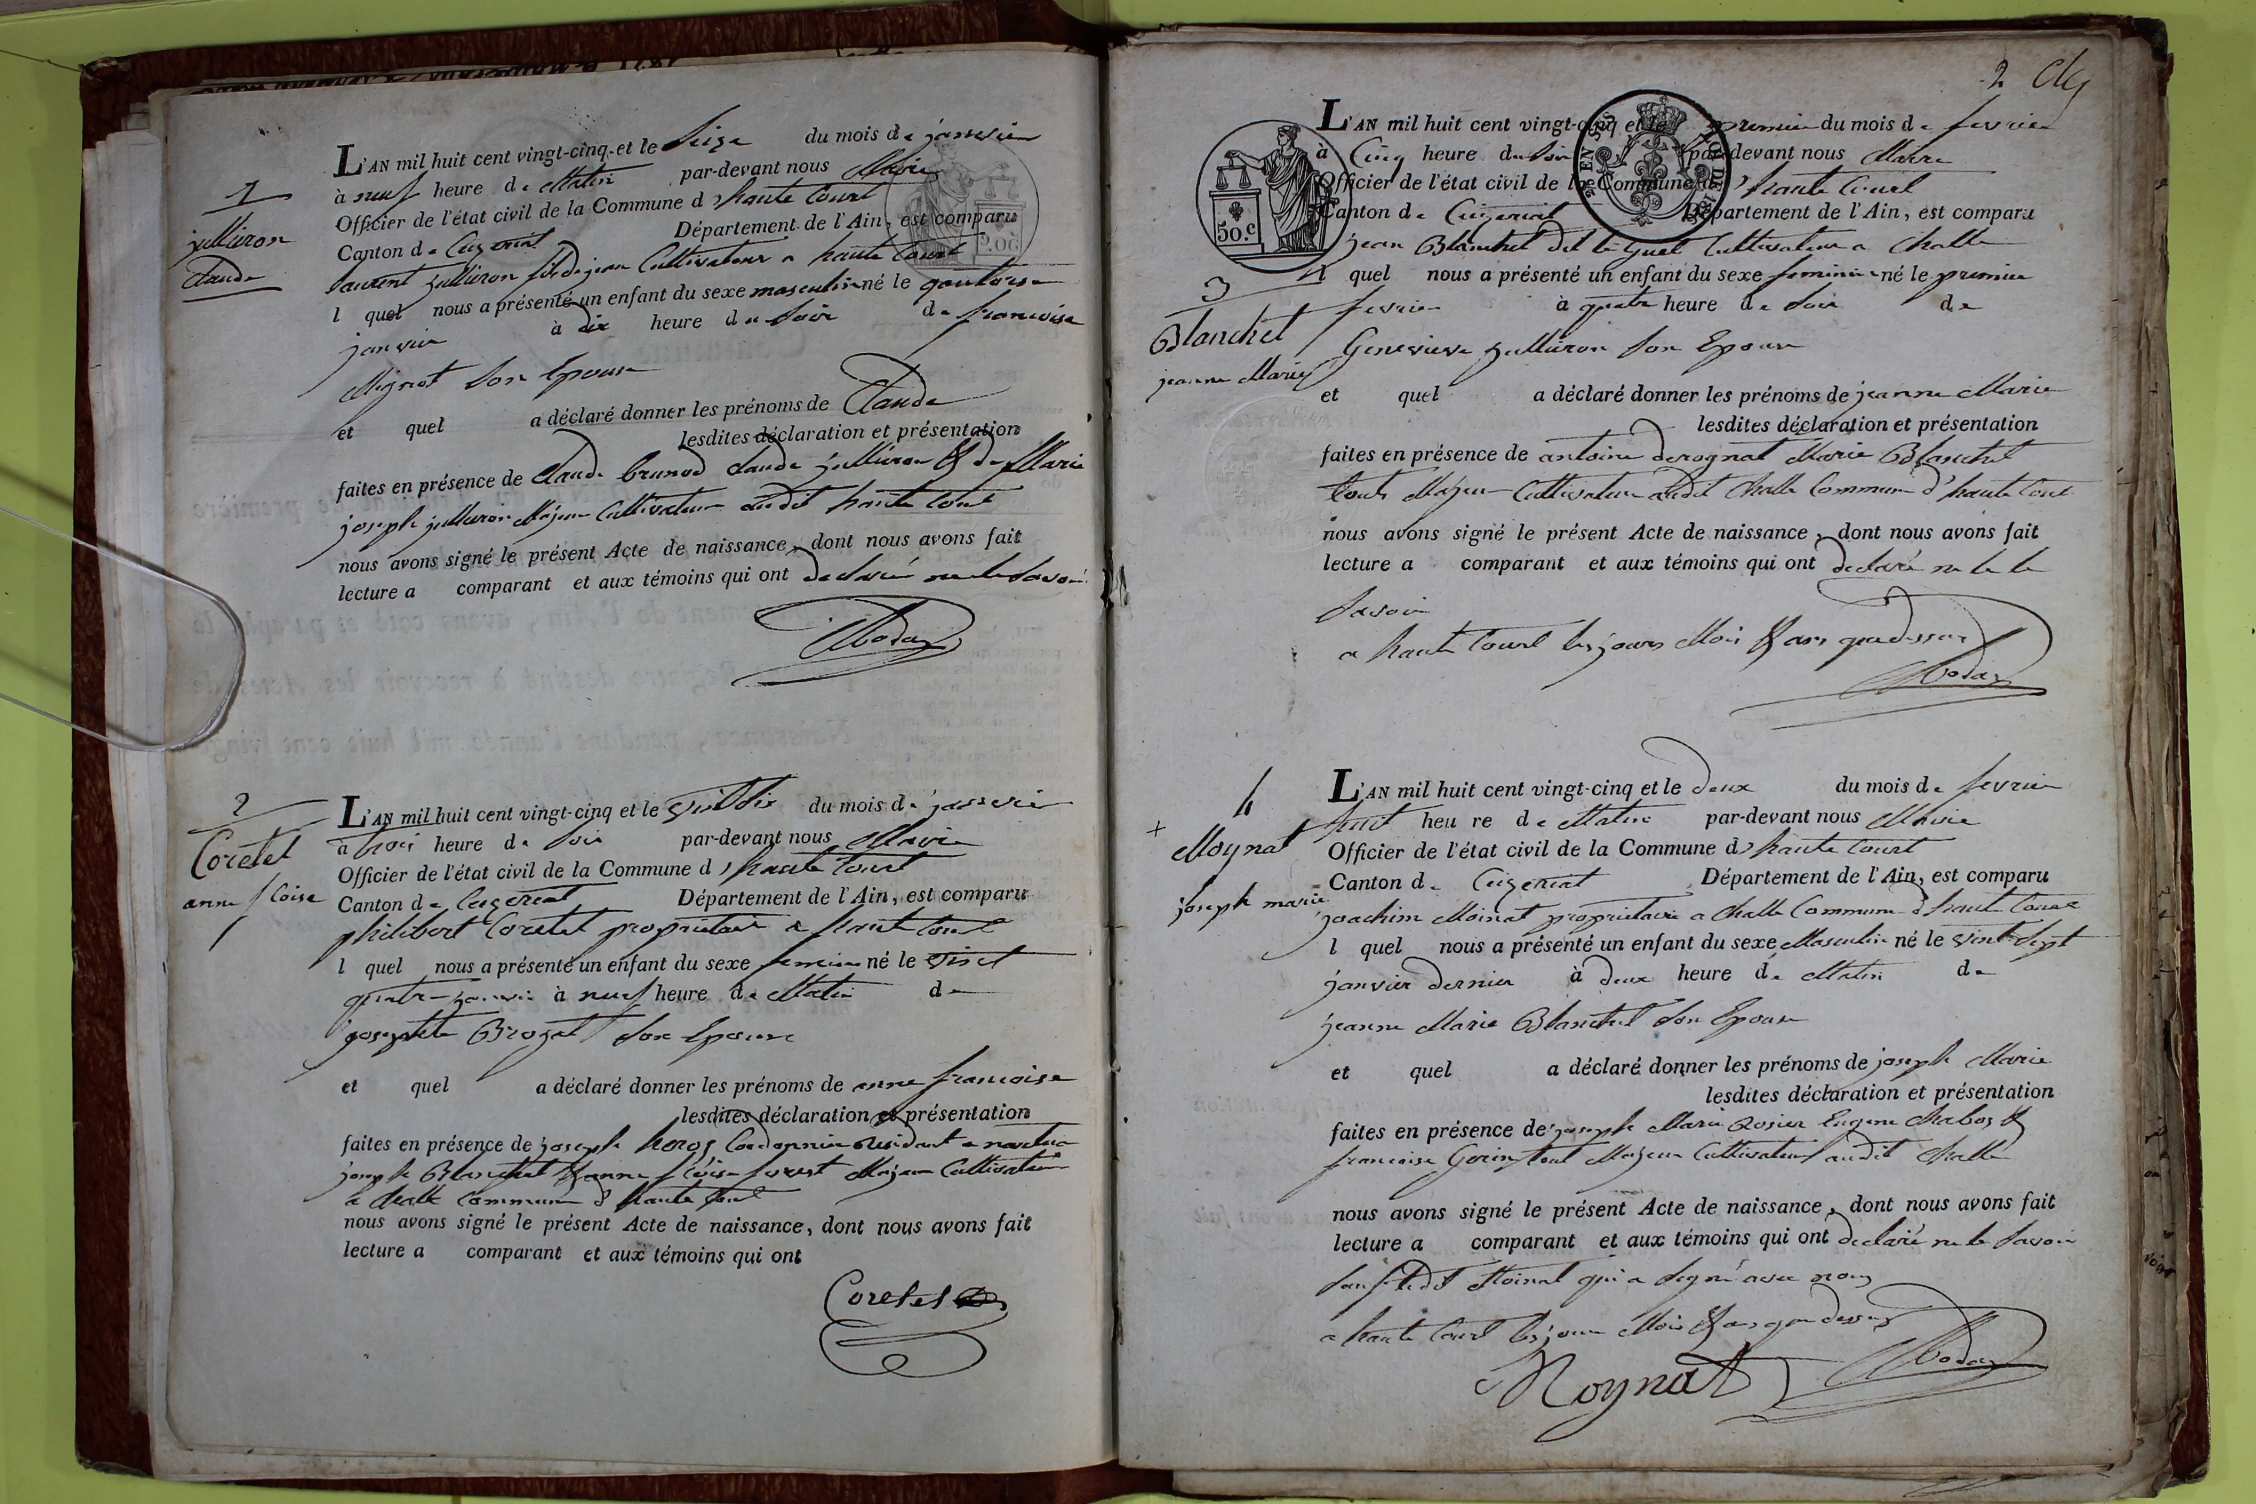 1
julliéron
Claude
L'AN mil huit cent vingt-cinq et le seize du mois de janvier
à neuf heure de Matin par-devant nous Maire
Officier de l'état civil de la Commune d'haute Court
Canton de Ceyzeriat Département de l'Ain, est comparu
laurent julliéron fils de jean Cultivateur a haute Court
l quel nous a présenté un enfant du sexe masculin né le quatorse
janvier à dix heure du soir de francoise
Mignot son Epouse
et quel a déclaré donner les prénoms de Claude
lesdites déclaration et présentation
faites en présence de Claude brunod Claude julliéron & de Marie
joseph julliéron Majeur Cultivateur audit haute Court
nous avons signé le présent Acte de naissance, dont nous avons fait
lecture a comparant et aux témoins qui ont déclaré ne le savoir
2
Coretet
anne f coise
L'AN mil huit cent vingt-cinq et le vint six du mois de janvier
à trois heure de soir par-devant nous Maire
Officier de l'état civil de la Commune d'haute Court
Canton de Ceyzeriat Département de l'Ain, est comparu
philibert Coretet propriétaire a haute Court
l quel nous a présenté un enfant du sexe feminin né le vint
quatre janvier à neuf heure de Matin de
josephte Brozet son Epouse
et quel a déclaré donner les prénoms de anne francoise
lesdites déclaration et présentation
faites en présence de joseph Cordonnier résidant a nantua
joseph Blanchet & anne f coise forest Majeur Cultivateur
a Challe Commune d'haute Court
nous avons signé le présent Acte de naissance, dont nous avons fait
lecture a comparant et aux témoins qui ont
Coretet
2
L'AN mil huit cent vingt-cinq et le premier du mois de fevrier
à Cinq heure du soir par-devant nous Maire
Officier de l'état civil de la Commune d'haute Court
Canton de Ceyzeriat Département de l'Ain, est comparu
50.c
jean Blanchet dit le Cultivateur a Challe
l quel nous a présenté un enfant du sexe feminin né le premier
3
Blanchet
jeanne Marie
fevrier à quatre heure de soir de
Genevieve julliéron son Epouse
et quel a déclaré donner les prénoms de jeanne Marie
lesdites déclaration et présentation
faites en présence de antoine derognat Marie Blanchet
touts Majeur Cultivateur audit Challe Commune d'haute Court
nous avons signé le présent Acte de naissance, dont nous avons fait
lecture a comparant et aux témoins qui ont déclaré ne le le
savoir
a haute Court les jours Mois & ans que dessus
4
Moynat
joseph marie
L'AN mil huit cent vingt-cinq et le deux du mois de fevrier
huit heu re de Matin par-devant nous Maire
Officier de l'état civil de la Commune d'haute Court
Canton de Ceyzeriat Département de l'Ain, est comparu
joachim Moinat propriétaire a Challe Commune d'haute Court
l quel nous a présenté un enfant du sexe Masculin né le vint sept
janvier dernier à deux heure de Matin de
jeanne Marie Blanchet son Epouse
et quel a déclaré donner les prénoms de joseph Marie
lesdites déclaration et présentation
faites en présence de joseph Marie Rosier Eugene Chabos &
francoise Gorin tout Majeur Cultivateur audit Challe
nous avons signé le présent Acte de naissance, dont nous avons fait
lecture a comparant et aux témoins qui ont déclaré ne le savoir
sauf ledit Moinat qui a signé avec nous
a haute Court les jour Mois & ans que dessus
Moynat